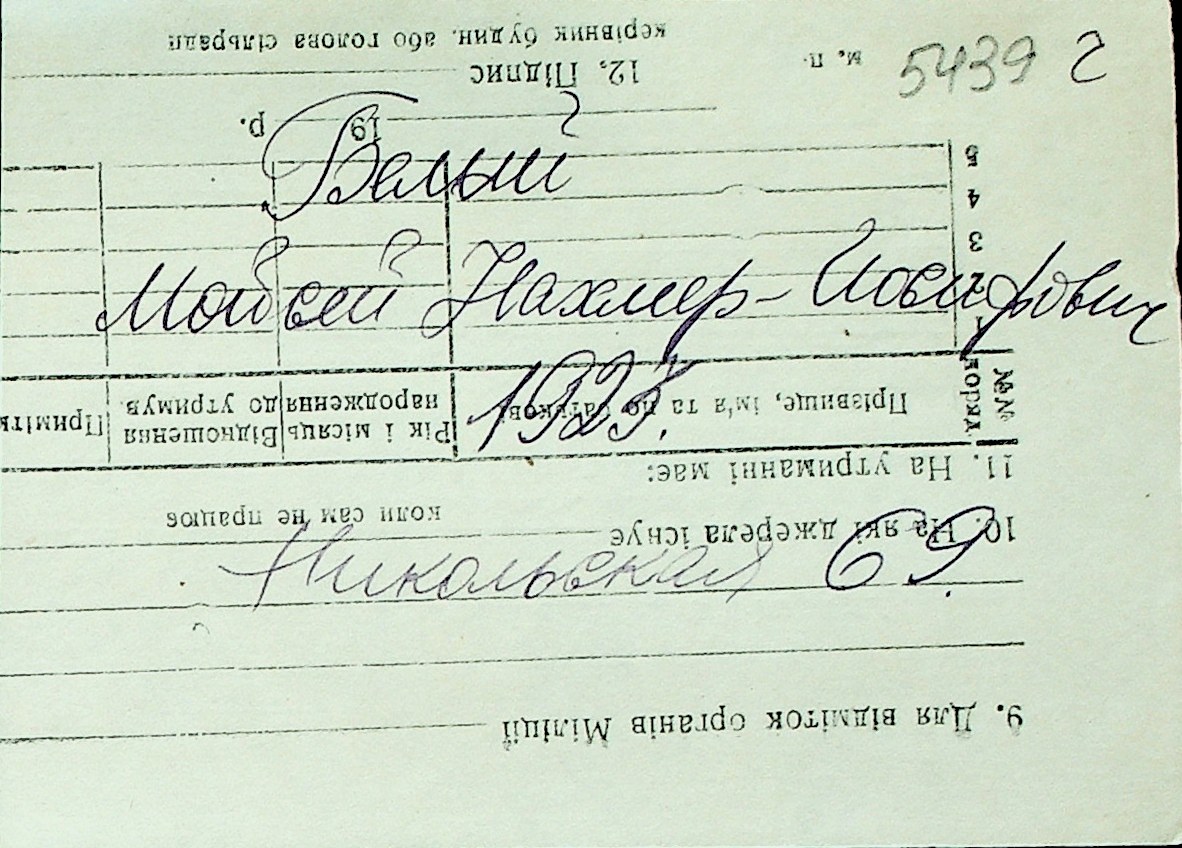 5439
Белый
Мойсей Нахмер-Иосифович
Никольская 69.
9. Для відміток органів Міліції
10. На які джерела існує
коли сам не працює
11. На утриманні має:
№№ поряд. Прізвище, ім'я та по батькові Рік і місяць народження Відношення до утримув.
1
2
3
4
5
19 р.
12. Підпис
м. п. керівник будин. або голова сільради